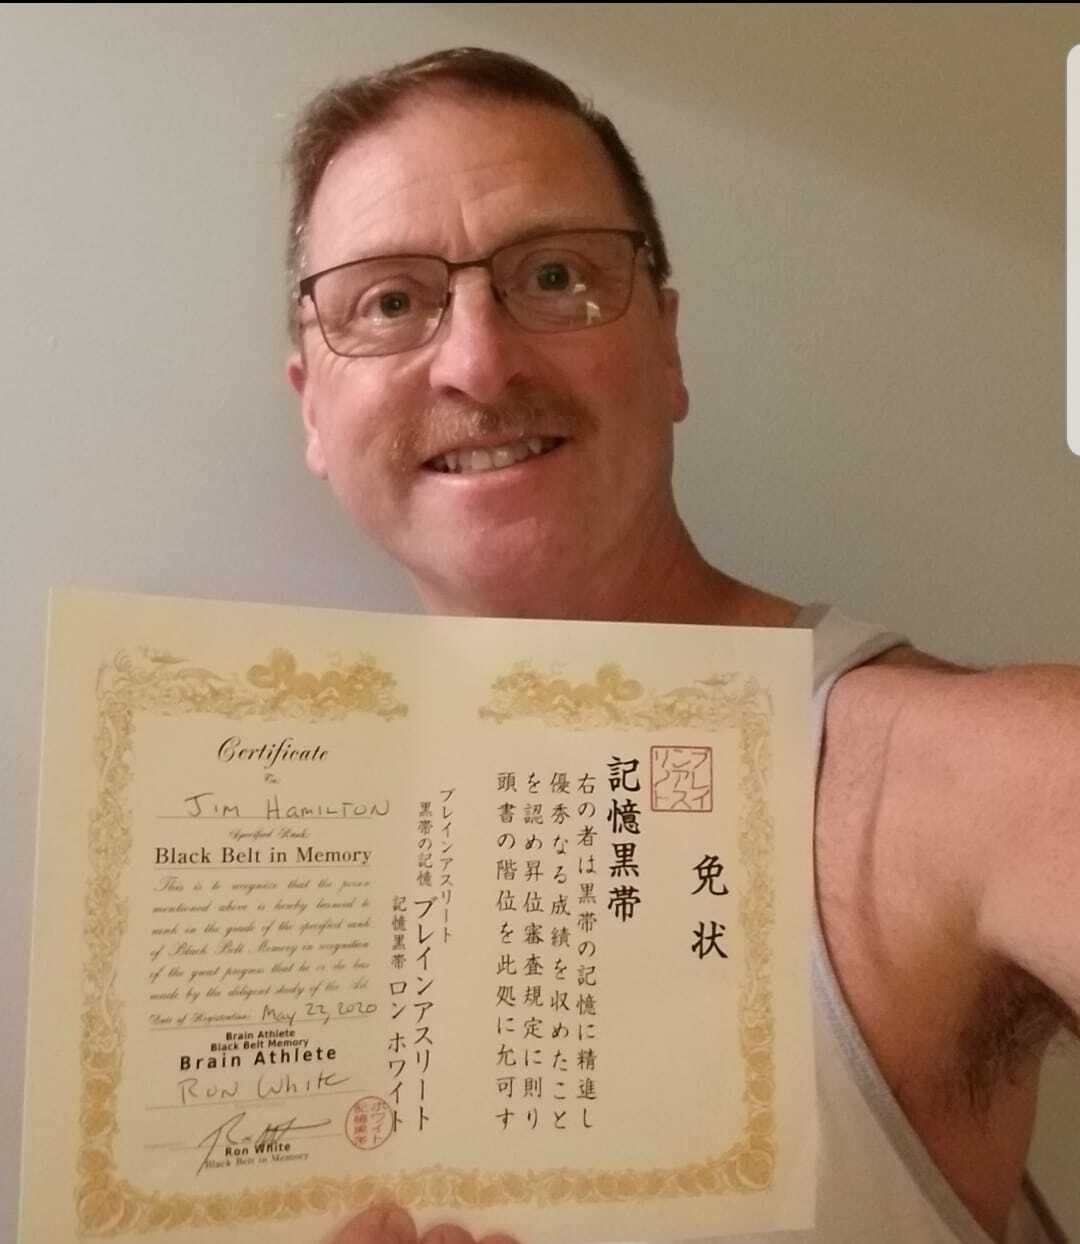 Certificate
To:
JIM HAMILTON
Specified Rank:
Black Belt in Memory
This is to recognize that the person
mentioned above is hereby licensed to
rank in the grade of the specified rank
of Black Belt Memory in recognition
of the great progress that he or she has
made by the diligent study of the Art.
Date of Registration: May 22, 2020
Brain Athlete
Black Belt Memory
Brain Athlete
RON White
Ron White
Black Belt in Memory
免状
ブレイ
ンアス
リート
記憶黒帯
右の者は黒帯の記憶に精進し
優秀なる成績を収めたこと
を認め昇位審査規定に則り
頭書の階位を此処に允可す
ブレインアスリート
黒帯の記憶 ブレインアスリート
記憶黒帯 ロン ホワイト
ホワイト
記憶黒帯